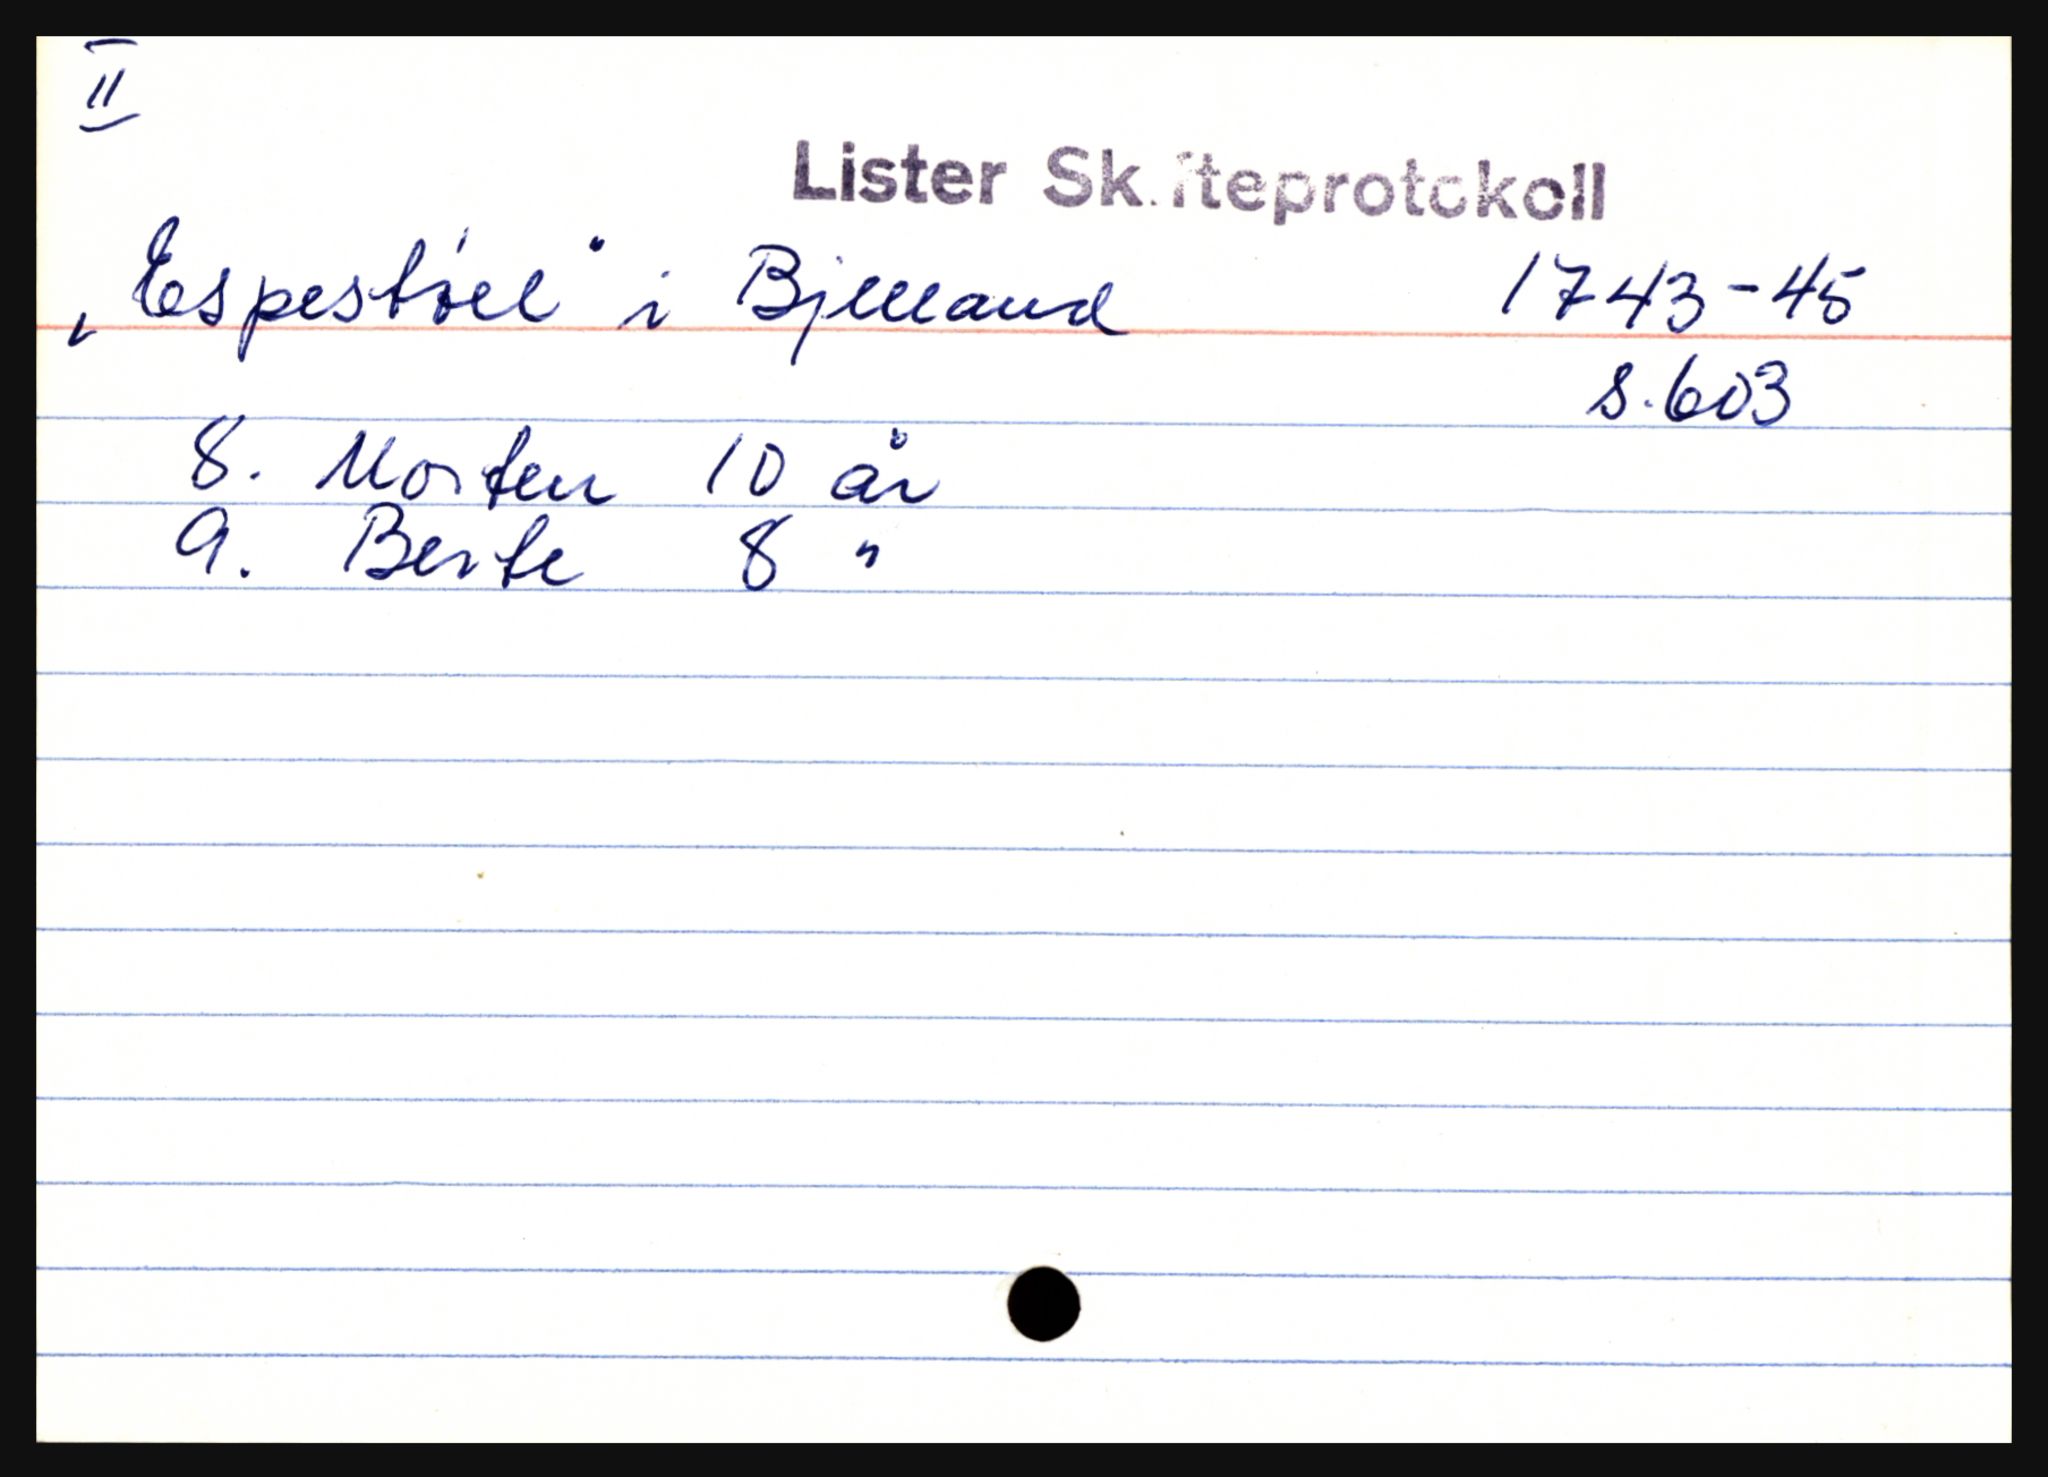 II
Lister Skifteprotokoll
„Espestøel" i Bjelland 1743-45
s. 603
8. Morten 10 år
9. Berte 8 "